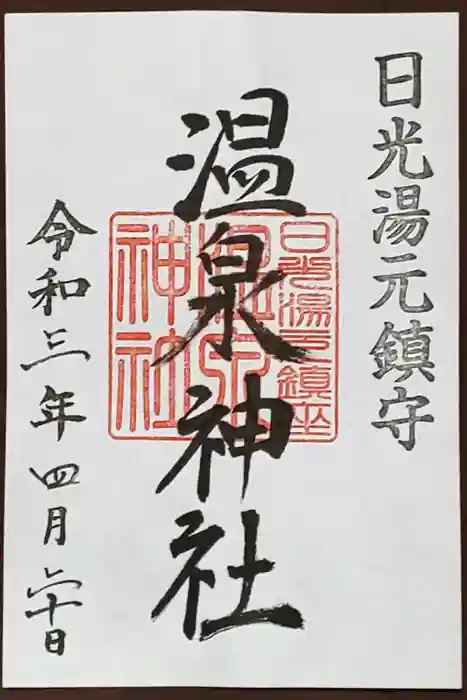 日光湯元鎮守
温泉神社
日光湯元鎮座
温泉
神社
令和三年四月十日